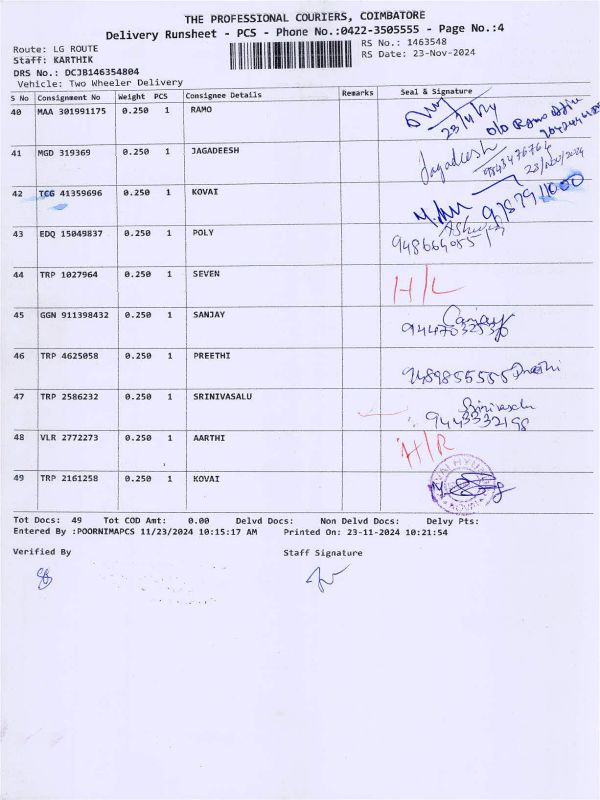 THE PROFESSIONAL COURIERS, COIMBATORE
Delivery Runsheet - PCS - Phone No.:0422-3505555 - Page No.:4
Route: LG ROUTE
RS No.: 1463548
Staff: KARTHIK
RS Date: 23-Nov-2024
DRS No.: DCJB146354804
Vehicle: Two Wheeler Delivery
S No Consignment No Weight PCS Consignee Details Remarks Seal & Signature
40 MAA 301991175 0.250 1 RAMO
41 MGD 319369 0.250 1 JAGADEESH Jagadeesh
9843476764
23/Nov/2024
42 TCG 41359696 0.250 1 KOVAI
43 EDQ 15049837 0.250 1 POLY
44 TRP 1027964 0.250 1 SEVEN H/L
45 GGN 911398432 0.250 1 SANJAY
46 TRP 4625058 0.250 1 PREETHI 9489855555 Preethi
47 TRP 2586232 0.250 1 SRINIVASALU
9443332198
48 VLR 2772273 0.250 1 AARTHI H/R
49 TRP 2161258 0.250 1 KOVAI
Tot Docs: 49 Tot COD Amt: 0.00 Delvd Docs: Non Delvd Docs: Delvy Pts:
Entered By :POORNIMAPCS 11/23/2024 10:15:17 AM Printed On: 23-11-2024 10:21:54
Verified By Staff Signature